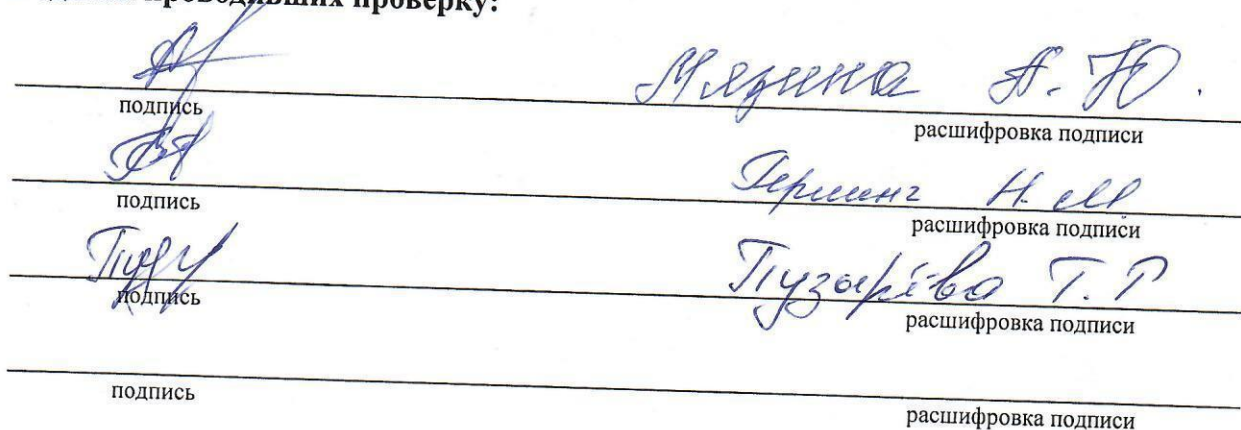 проводивших проверку:
Мязина А. Ю.
подпись
расшифровка подписи
Герлинг Н. М
подпись
расшифровка подписи
Пузырёва Т. Г
подпись
расшифровка подписи
подпись
расшифровка подписи